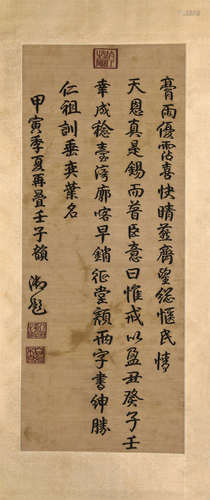 膏雨優霑喜快晴齊望總愜民情
天恩真是錫而普臣意曰惟戒以盈丑癸子壬
幸成稔臺灣廓喀早銷征堂顏兩字書紳勝
仁祖訓垂英葉名
甲寅季夏再疊壬子韻 御題